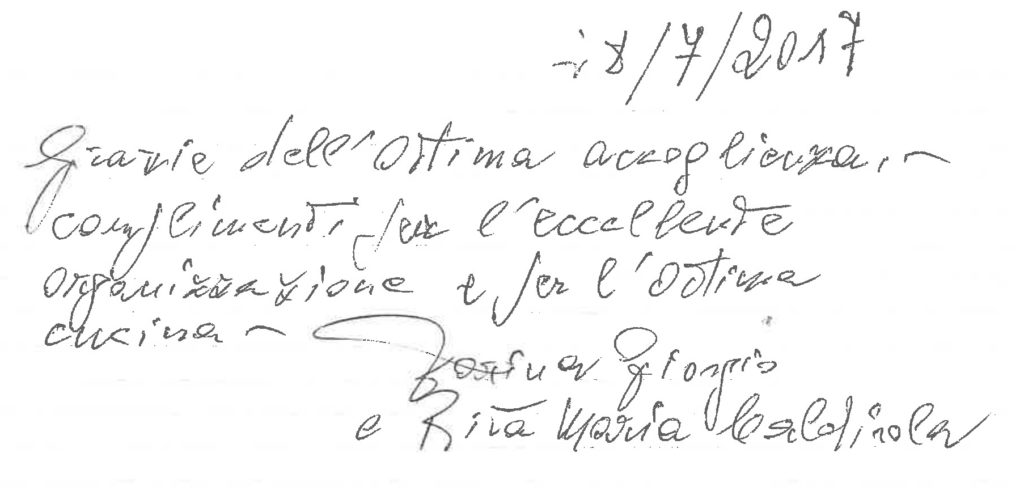 18/7/2017
Grazie dell'ottima accoglienza,
complimenti per l'eccellente
organizzazione e per l'ottima
cucina -
Giorgio
e Rita Maria Caldirola